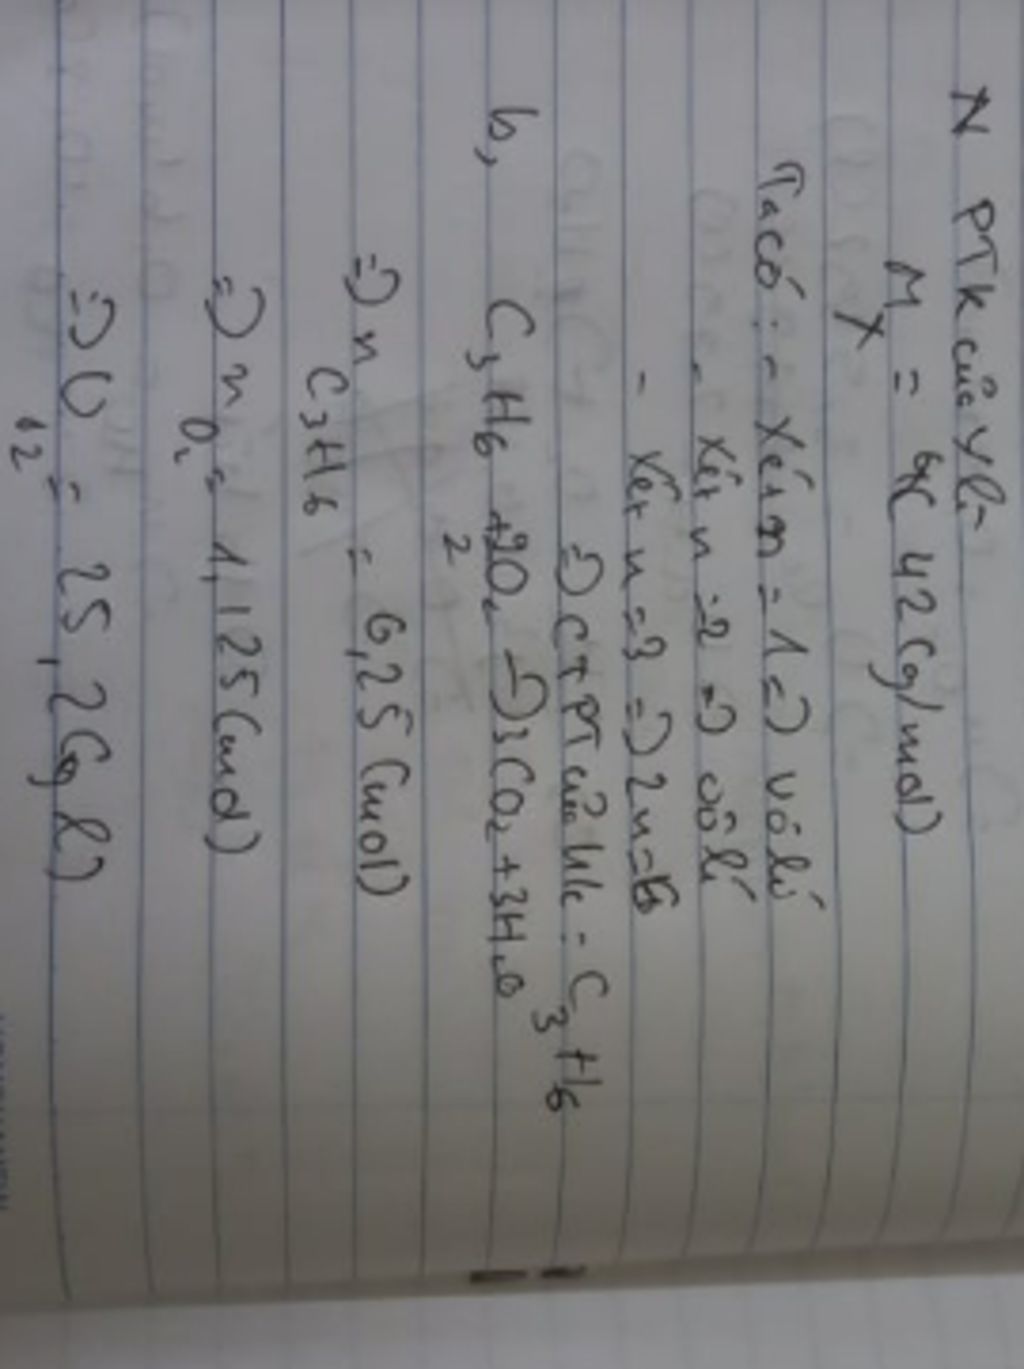 N PTK của Y là
M_X = 42 (g/mol)
Ta có: - Xét n = 1 => vô lí
- Xét n = 2 => vô lí
- Xét n = 3 => 2n = 6
=> CTPT của : C3H6
b, C3H6 + 9/2 O2 -> 3CO2 + 3H2O
=> n C3H6 = 6,25 (mol)
=> n O2 = 1,125 (mol)
=> V = 25,2 ( l)